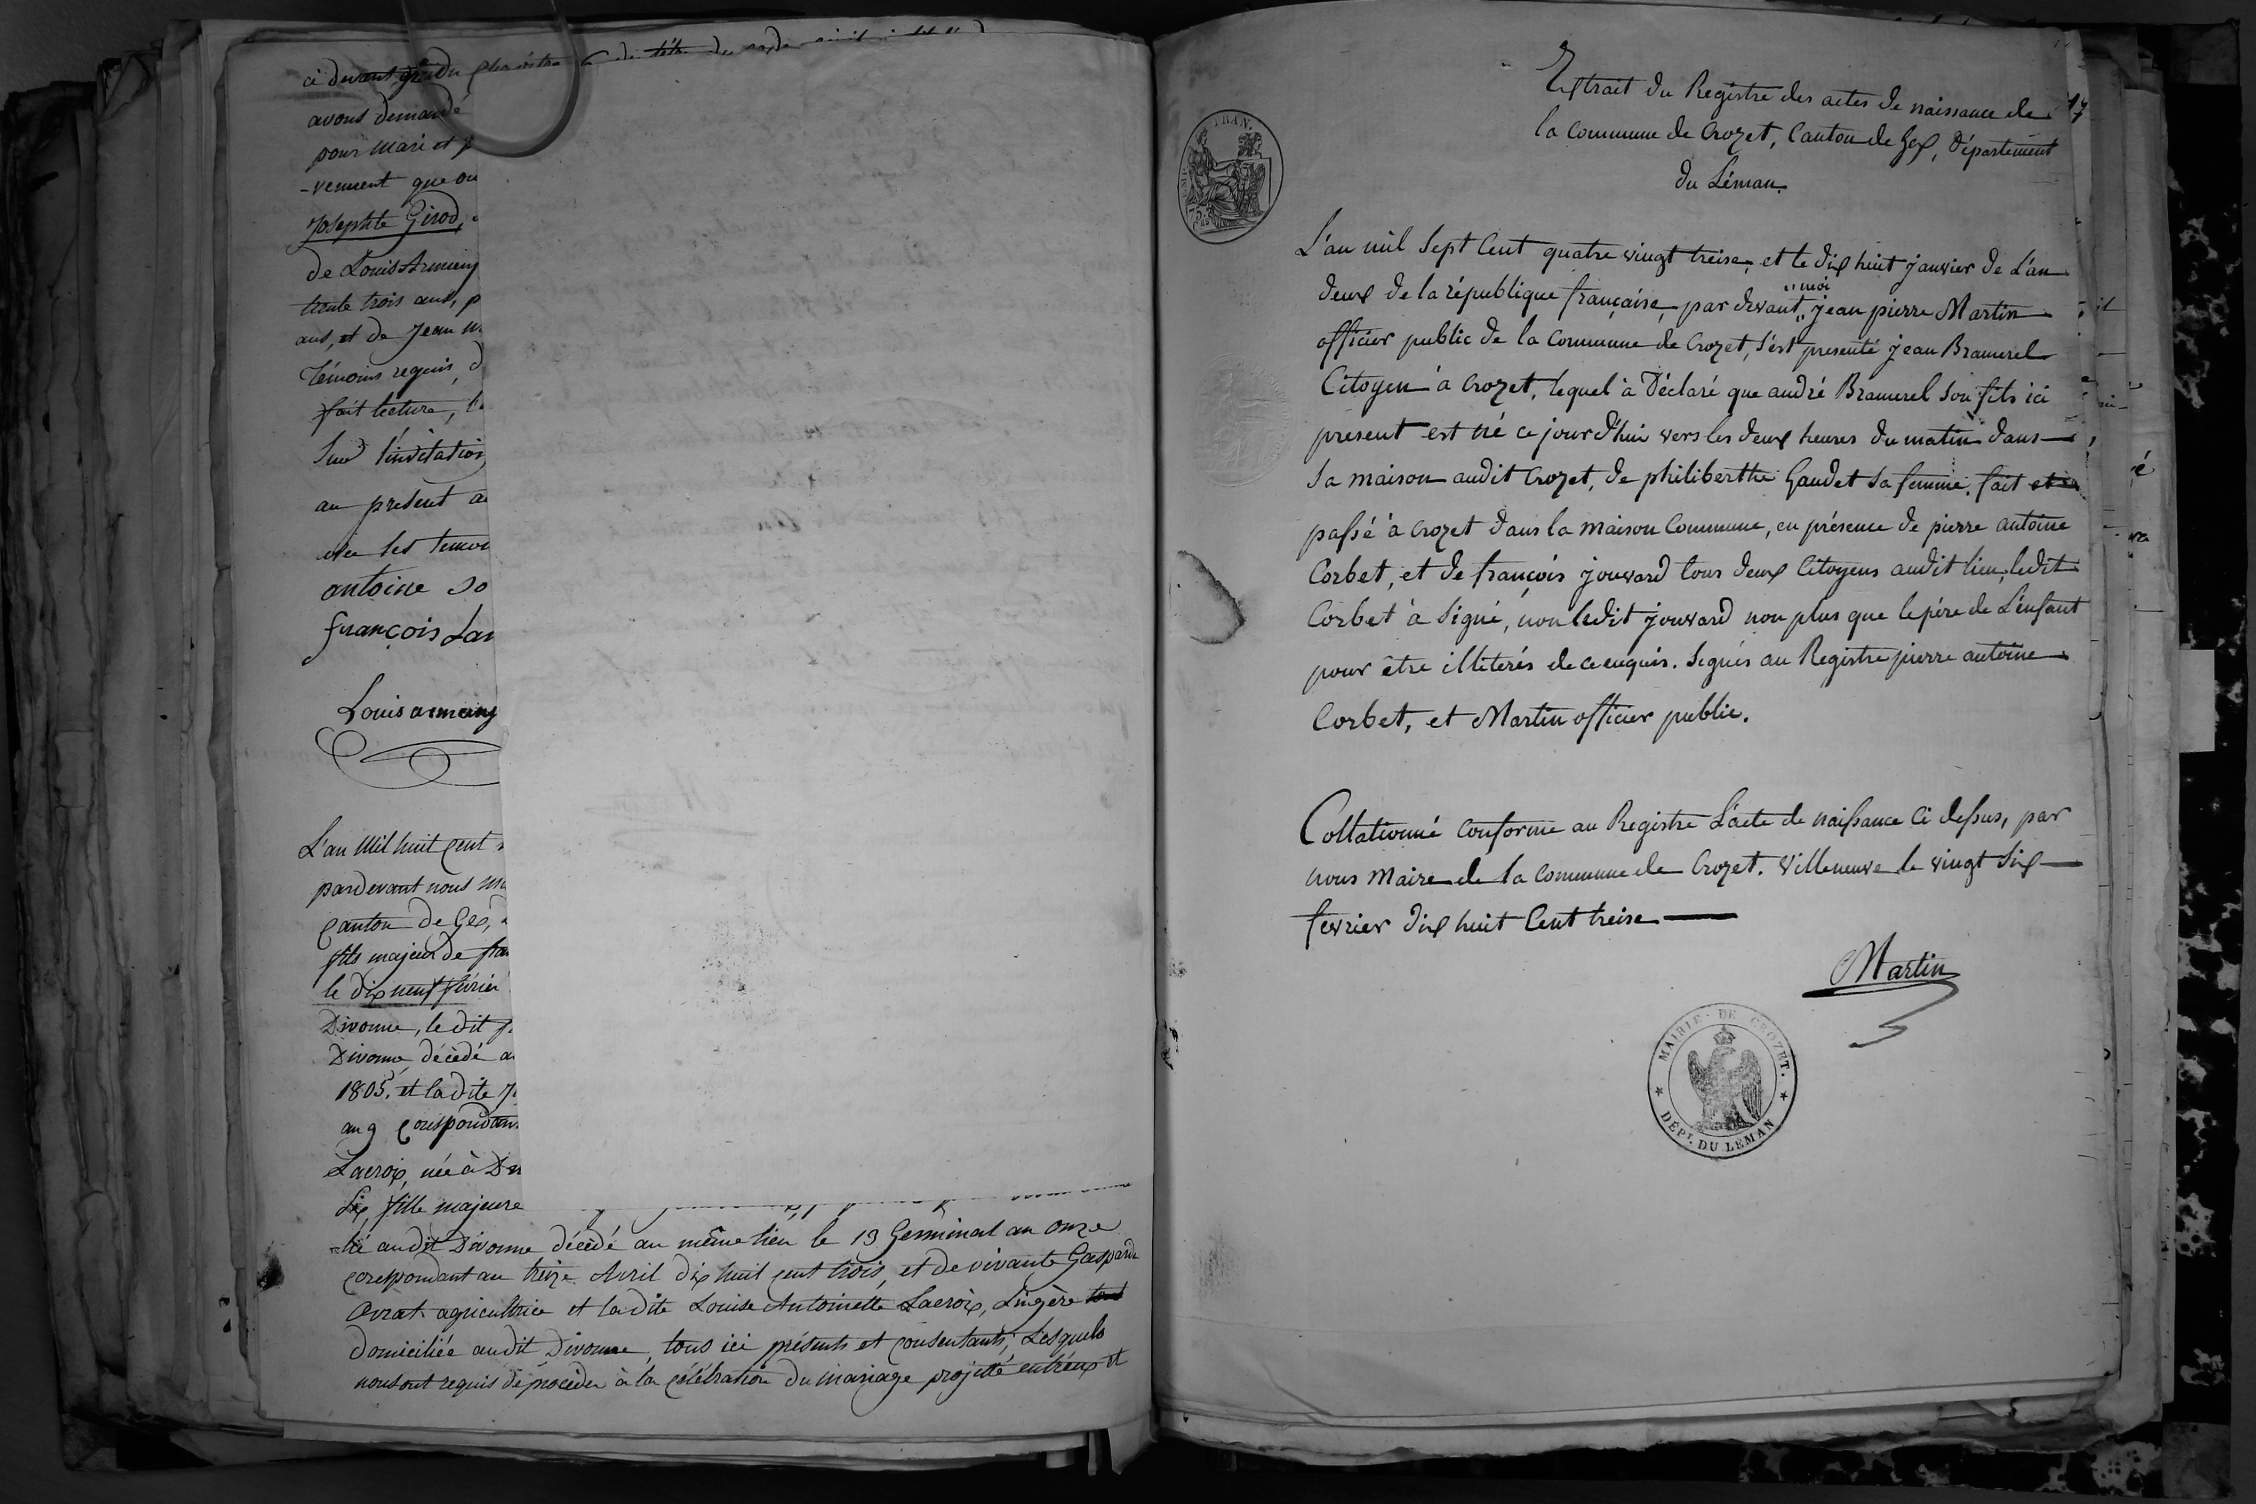 ci devant
avons demandé
pour mari et
-vement que ou
Josephte Girod,
de Louis Armeny
trente trois ans, p
ans, et de Jean
témoins requis, d
fait lecture,
Sur l'invitation
au présent a
avec les temoi
antoine so
françois Lar
Louis armeny
L'an Mil huit Cent
pardevant nous
Canton de Gex,
fils majeur de fra
le dix neuf février
Divonne, le dit
Divonne, décédé a
1805. et la dite
an 9 Correspondan
Lacroix, née à Di
Six, fille majeure
-té audit Divonne décédé au même lieu le 13 Germinal an Onze
Correspondant au treize Avril dix huit cent trois, et de vivante Gasparde
Avrat agricultrice et la dite Louise Antoinette Lacroix, Lingère tous
domiciliée audit Divonne, tous ici présents et Consentants; Lesquels
nous ont requis de procéder à la célébration du mariage projetté entr'eux et
Extrait du Registre des actes de naissance de 17
la Commune de Crozet, Canton de Gex, Département
du Léman.
L'an mil Sept Cent quatre vingt treise, et le dix huit janvier de L'an
deux de la république française, par devant "moi" jean pierre Martin
officier public de la Commune de Crozet, s'est presenté jean Bramerel
Citoyen à Crozet, lequel à Déclaré que andré Bramerel Son fils ici
présent est né ce jourd'hui vers les deux heures du matin dans
Sa maison audit Crozet, de philiberthe Gaudet Sa femme. fait et
passé à Crozet dans la maison Commune, en présence de pierre antoine
Corbet, et de françois jouvard tous deux Citoyens audit lieu, ledit
Corbet à Signé, non ledit jouvard non plus que le père de L'enfant
pour être illiterés de ce enquis. Signés au Registre pierre antoine
Corbet, et Martin officier public.
Collationné Conforme au Registre L'acte de naissance Ci dessus, par
nous Maire de la Commune de Crozet. Villeneuve le vingt Six
fevrier dix huit Cent treise
Martin
MAIRIE DE CROZET.
DÉPT. DU LEMAN